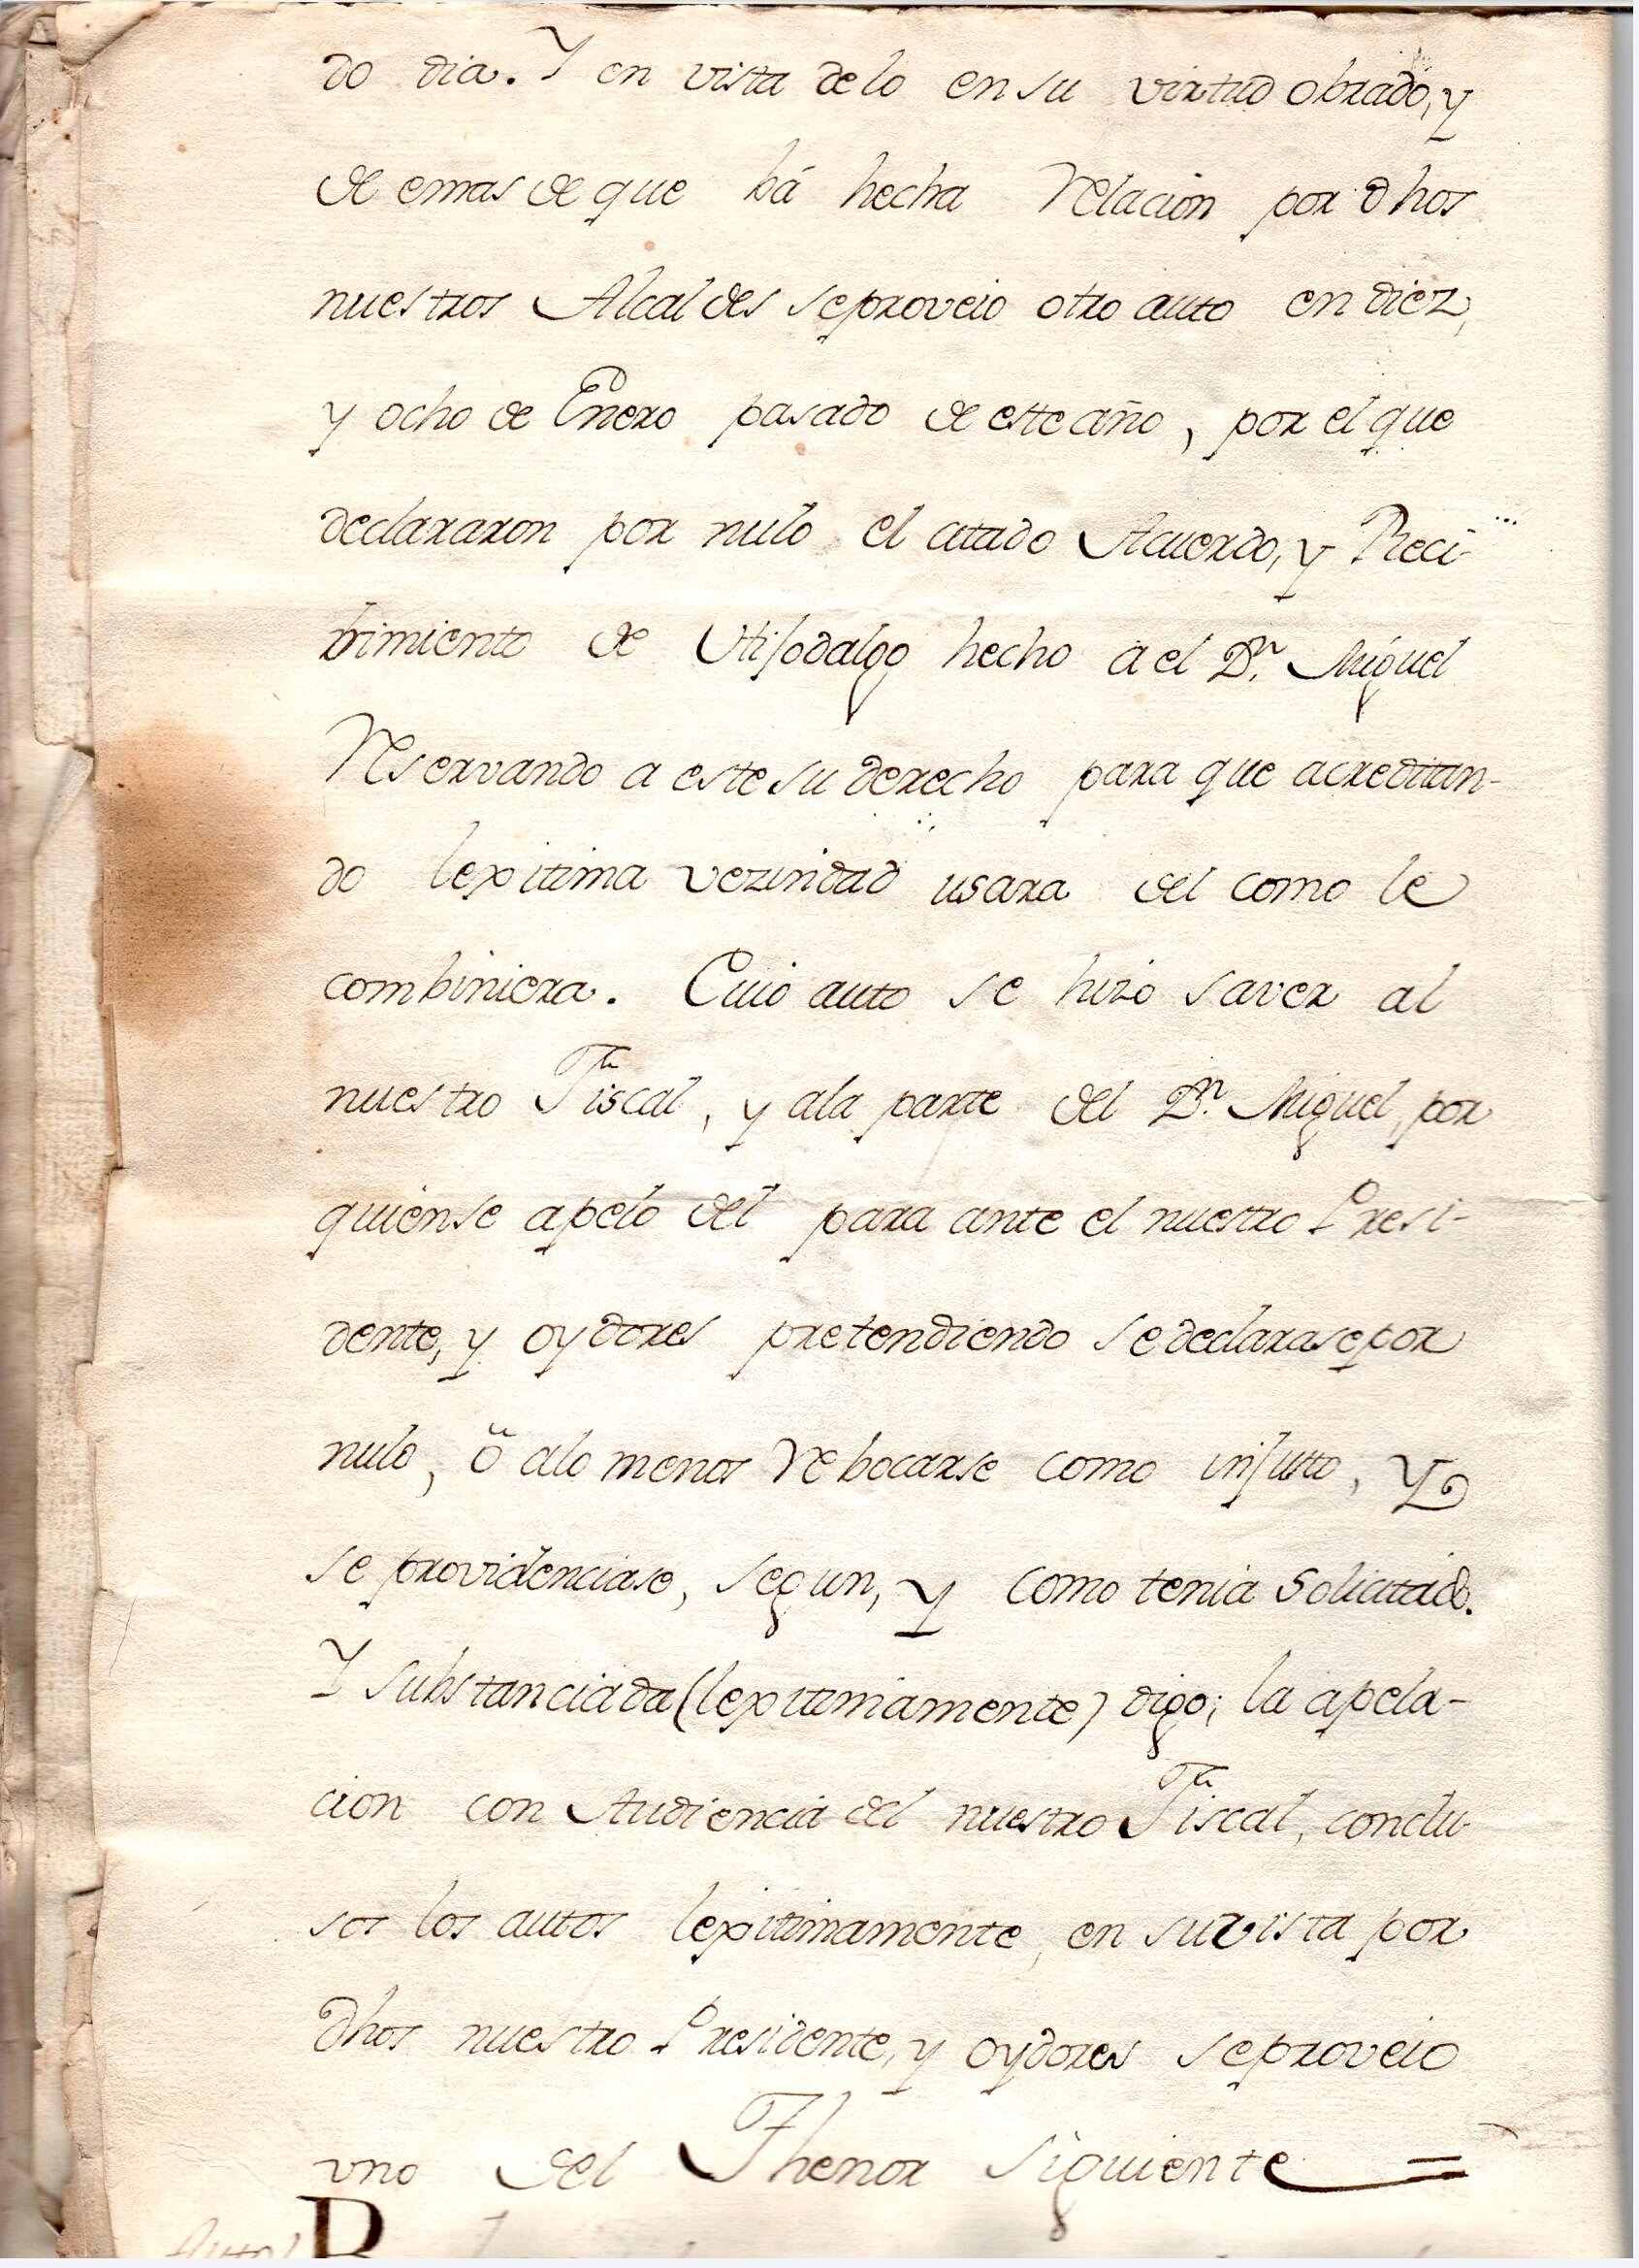 do dia. Y en vista delo en su virtud obrado, y
de emas de que bá hecha relacion por dhos
nuestros Alcaldes se proveio otro auto en diez,
y ocho de Enero pasado de este año, por el que
declararon por nulo el citado Acuerdo, y Reci-
bimiento de Hijodalgo hecho a el Dn. Miguel
Reservando a este su derecho para que acreditan-
do lexitima vezindad usara del como le
combiniera. Cuio auto se hizo saver al
nuestro Fiscal, y ala parte del Dn. Miguel, por
quiense apelo del para ante el nuestro Presi-
dente, y oydores pretendiendo se declarase por
nulo, ö alo menos rebocarse como injusto, y
se providenciase, segun, y como tenia solicitado.
Y substanciada (lexitimamente) digo; la apela-
cion con Audiencia del nuestro Fiscal, conclu-
sos los autos lexitimamente, en su vista por
dhos nuestro Presidente, y oydores se proveio
vno del Thenor siguiente =
Auto